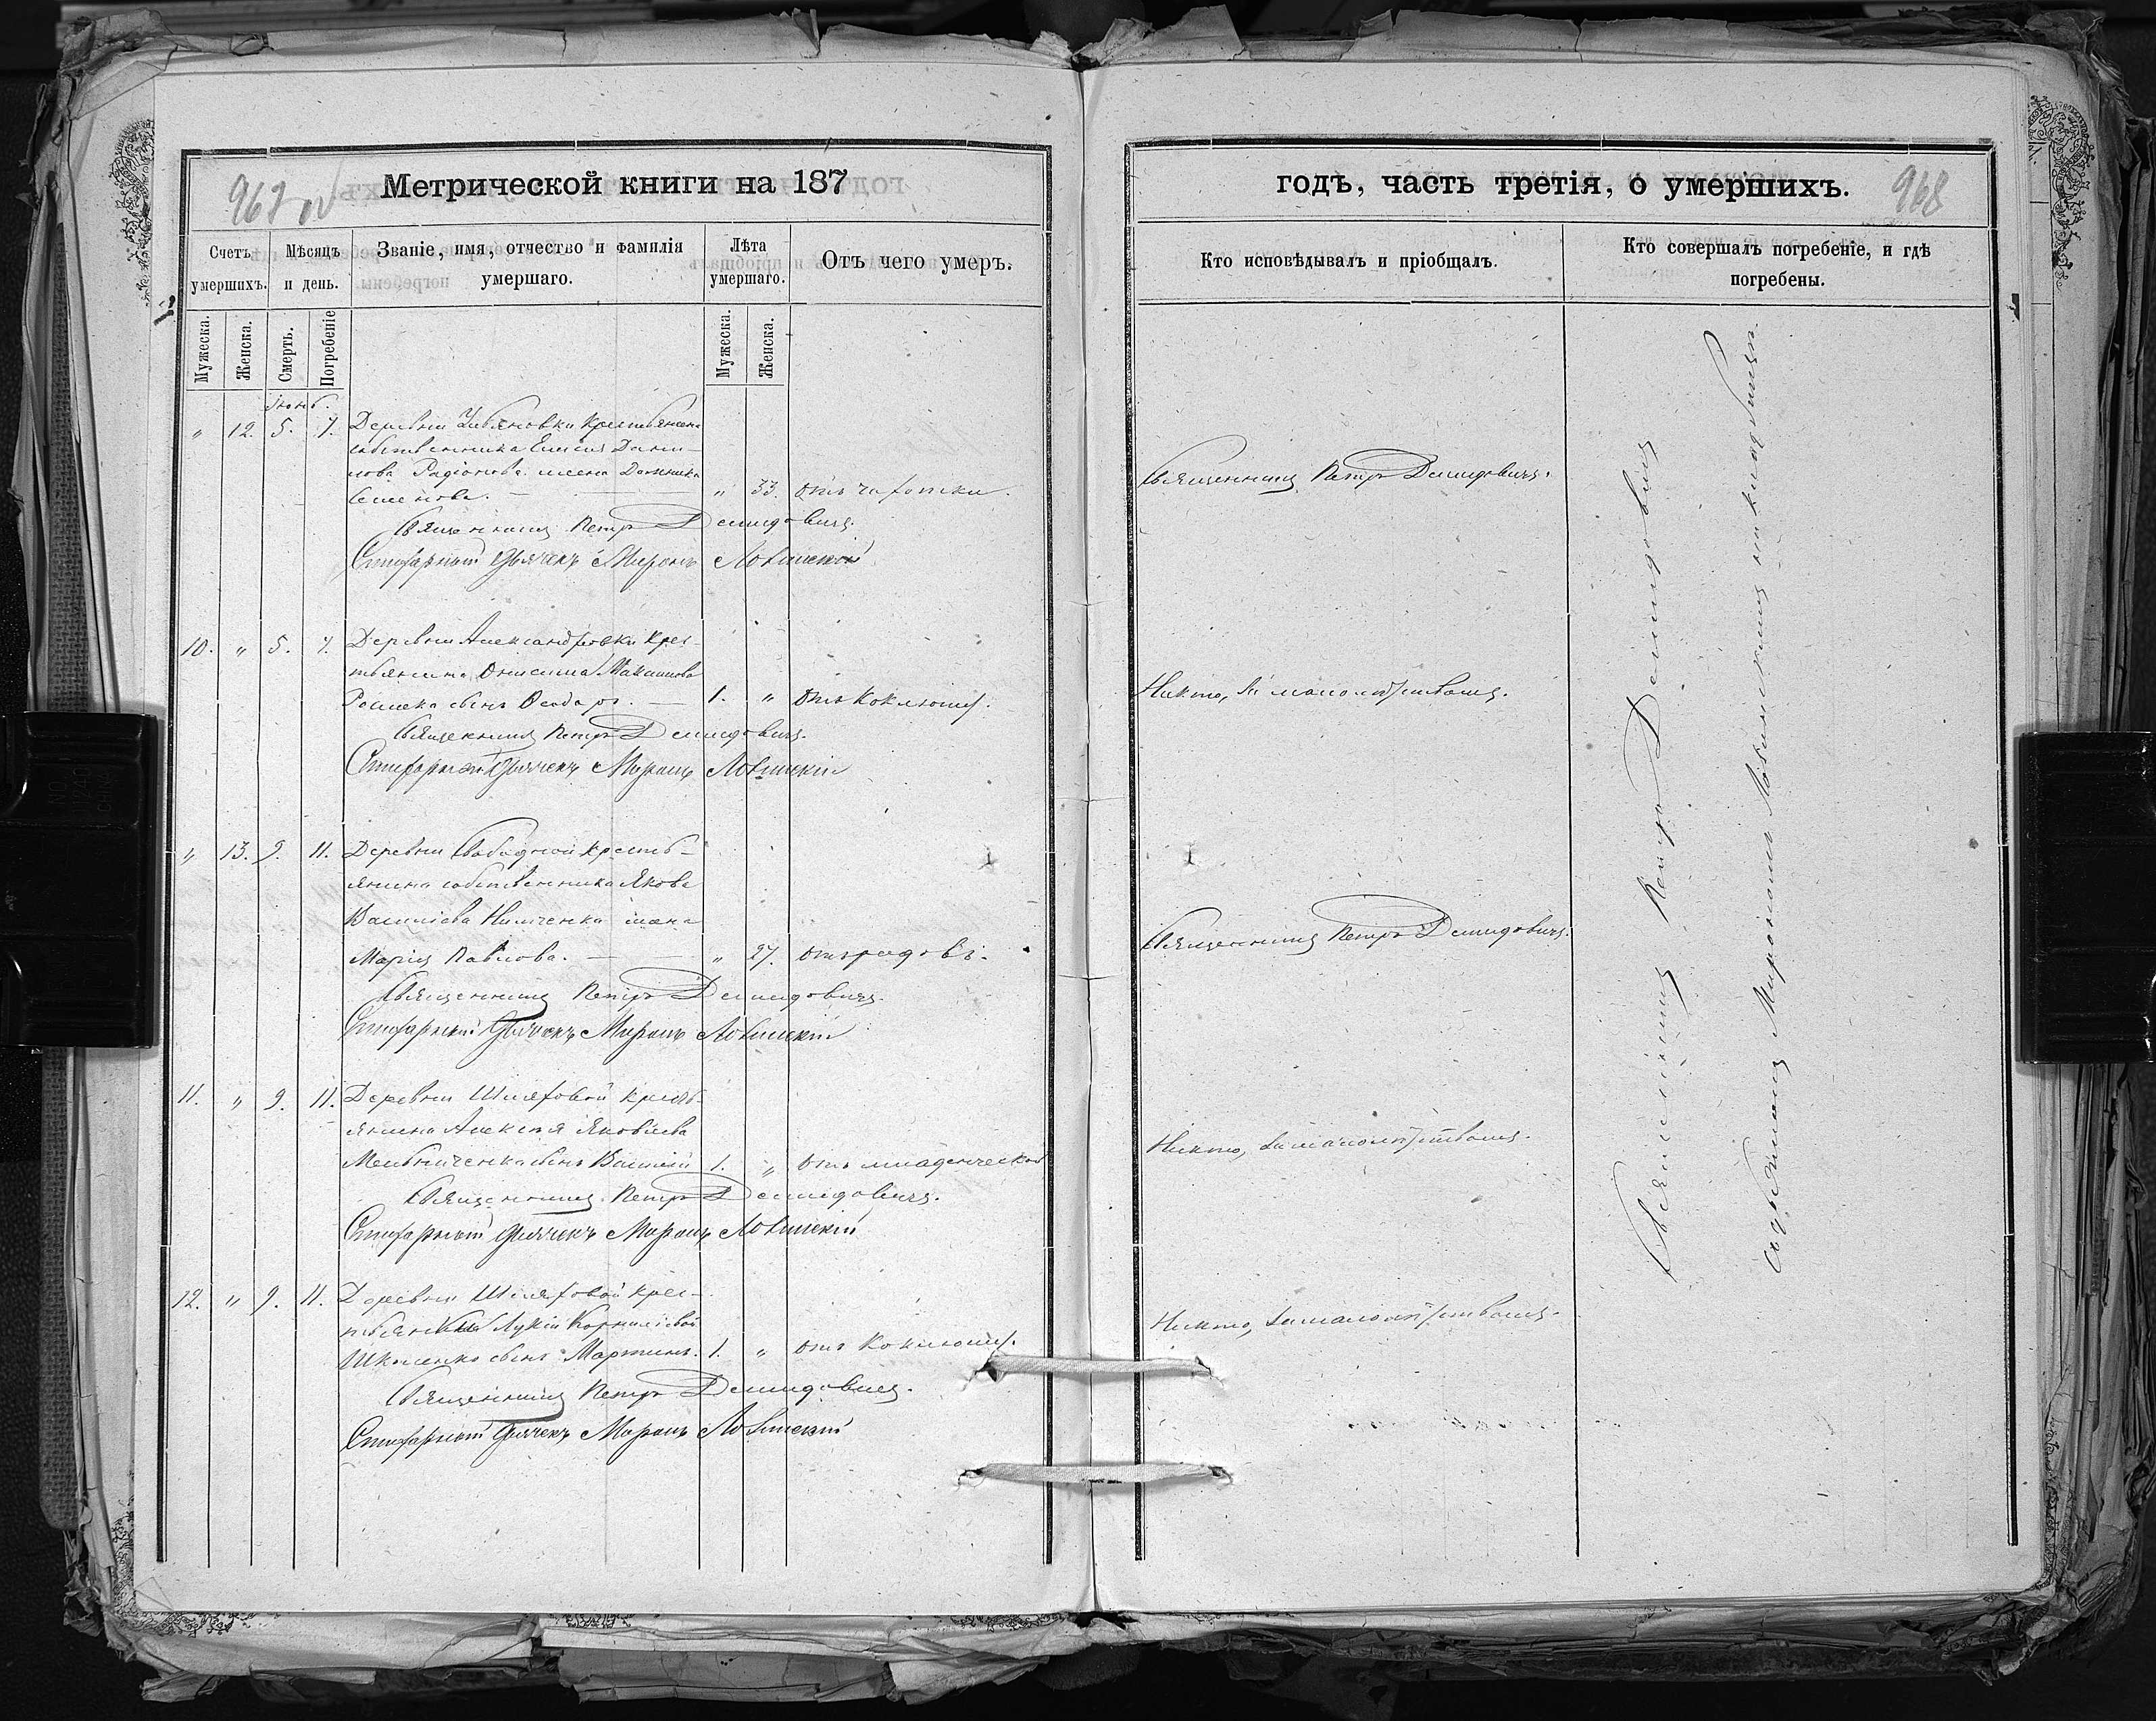 967 об
Метрической книги на 187
Счетъ умершихъ.
Мѣсяцъ и день.
Званіе, имя, отчество и фамилія умершаго.
Лѣта умершаго.
Отъ чего умеръ.
Мужеска.
Женска.
Смерть.
Погребеніе
Мужеска.
Женска.
Іюнь.
" 12. 5. 7. Деревни крестьянина
собственника Елисея Дани-
лова Радіонова жена Домника
Семенова. — " 33. Отъ чахотки.
Священникъ Петръ Демидовичъ.
Стихарный Дьячекъ Миронъ Ловинскій
10. " 5. 7. Деревни Александровки Крес-
тьянина Онисима Максимова
сынъ Ѳеодоръ. — 1. " Отъ Коклюша.
Священникъ Петръ Демидовичъ.
Стихарный Дьячекъ Миронъ Ловинскій
" 13. 9. 11. Деревни Свободной Кресть-
янина собственника Якова
Василіева жена
Марія Павлова. — " 27. отъ родовъ.
Священникъ Петръ Демидовичъ.
Стихарный Дьячекъ Миронъ Ловинскій
11. " 9. 11. Деревни Шляховой Кресть-
янина Алексія Яковлева
Мельниченка сынъ Василій 1. " отъ младенческой
Священникъ Петръ Демидовичъ.
Стихарный Дьячекъ Миронъ Ловинскій
12. " 9. 11. Деревни Шляховой Крес-
Лукіи Корниліевой
сынъ Мартинъ. 1. " отъ Коклюша.
Священникъ Петръ Демидовичъ.
Стихарный Дьячекъ Миронъ Ловинскій
годъ, часть третія, о умершихъ.
968
Кто исповѣдывалъ и пріобщалъ.
Кто совершалъ погребеніе, и гдѣ погребены.
Священникъ Петръ Демидовичъ.
Никто, за малолѣтствомъ.
Священникъ Петръ Демидовичъ.
Никто, за малолѣтствомъ.
Никто, за малолѣтствомъ.
Священникъ Петръ Демидовичъ
Мирономъ Ловинскимъ на кладбищѣ.